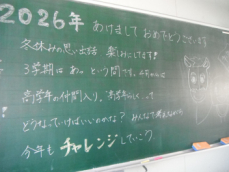 2026年 あけまして おめでとうございます
冬休みの思い出話 楽しみにしてます!
3学期は あっという間です。4月からは
高学年の仲間入り。高学年らしくって
どうなっていけばいいのかな? みんなで考えながら
今年も チャレンジしていこう